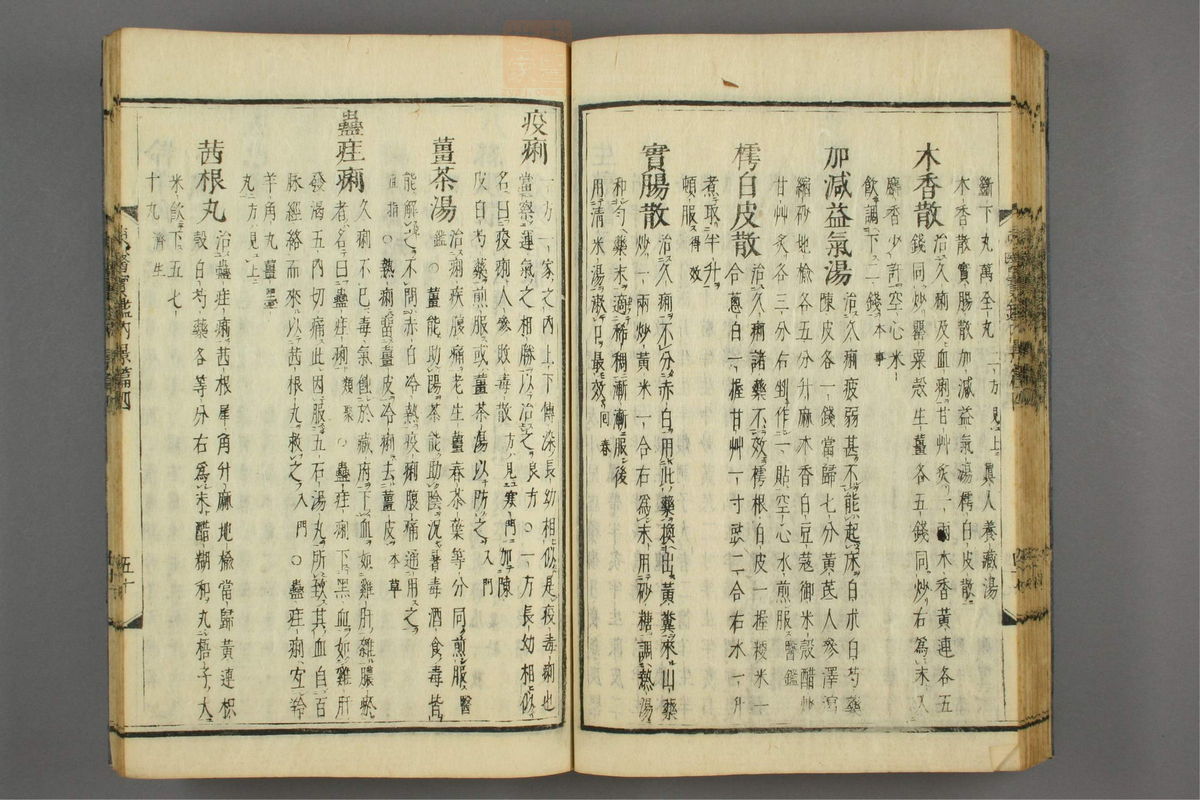 斷下丸萬全丸二方見上眞人養藏湯
木香散實腸散加減益氣湯樗白皮散
木香散治久痢及血痢甘艸炙一兩木香黃連各五
錢同炒罌粟殼生薑各五錢同炒右爲末入
麝香少許空心米
飮調下二錢本事
加減益氣湯治久痢疲弱甚不能起床白朮白芍藥
陳皮各一錢當歸七分黃芪人參澤瀉
縮砂地楡各五分升麻木香白豆蔻御米殼醋炒
甘艸炙各三分右剉作一貼空心水煎服醫鑑
樗白皮散治久痢諸藥不效樗根白皮一握粳米一
合蔥白一握甘艸一寸豉二合右水一升
煮取半升
頓服得效
實腸散治久痢不分赤白用此藥換出黃糞來山藥
炒一兩炒黃米一合右爲末用砂糖調熱湯
和勻藥末適稀稠漸漸服後
用淸米湯漱口最效回春
疫痢一方一家之內上下傳染長幼相似是疫毒痢也
當察運氣之相勝以治之良方○一方長幼相似
名曰疫痢人參敗毒散方見寒門加陳
皮白芍藥煎服或薑茶湯以防之入門
薑茶湯治痢疾腹痛老生薑春茶葉等分同煎服醫
鑑○薑能助陽茶能助陰況暑毒酒食毒皆
能解之不問赤白冷熱疫痢腹痛通用之
直指○熱痢留薑皮冷痢去薑皮本草
蠱疰痢久痢不已毒氣蝕於藏府下血如雞肝雜膿瘀
者名曰蠱疰痢類聚○蠱疰痢下黑血如雞肝
發渴五內切痛此因服五石湯丸所致其血自百
脉經絡而來以茜根丸救之入門○蠱疰痢宜羚
羊角丸薑墨
丸二方見上
茜根丸治蠱疰痢茜根犀角升麻地楡當歸黃連枳
殼白芍藥各等分右爲末醋糊和丸梧子大
米飮下五七
十丸濟生